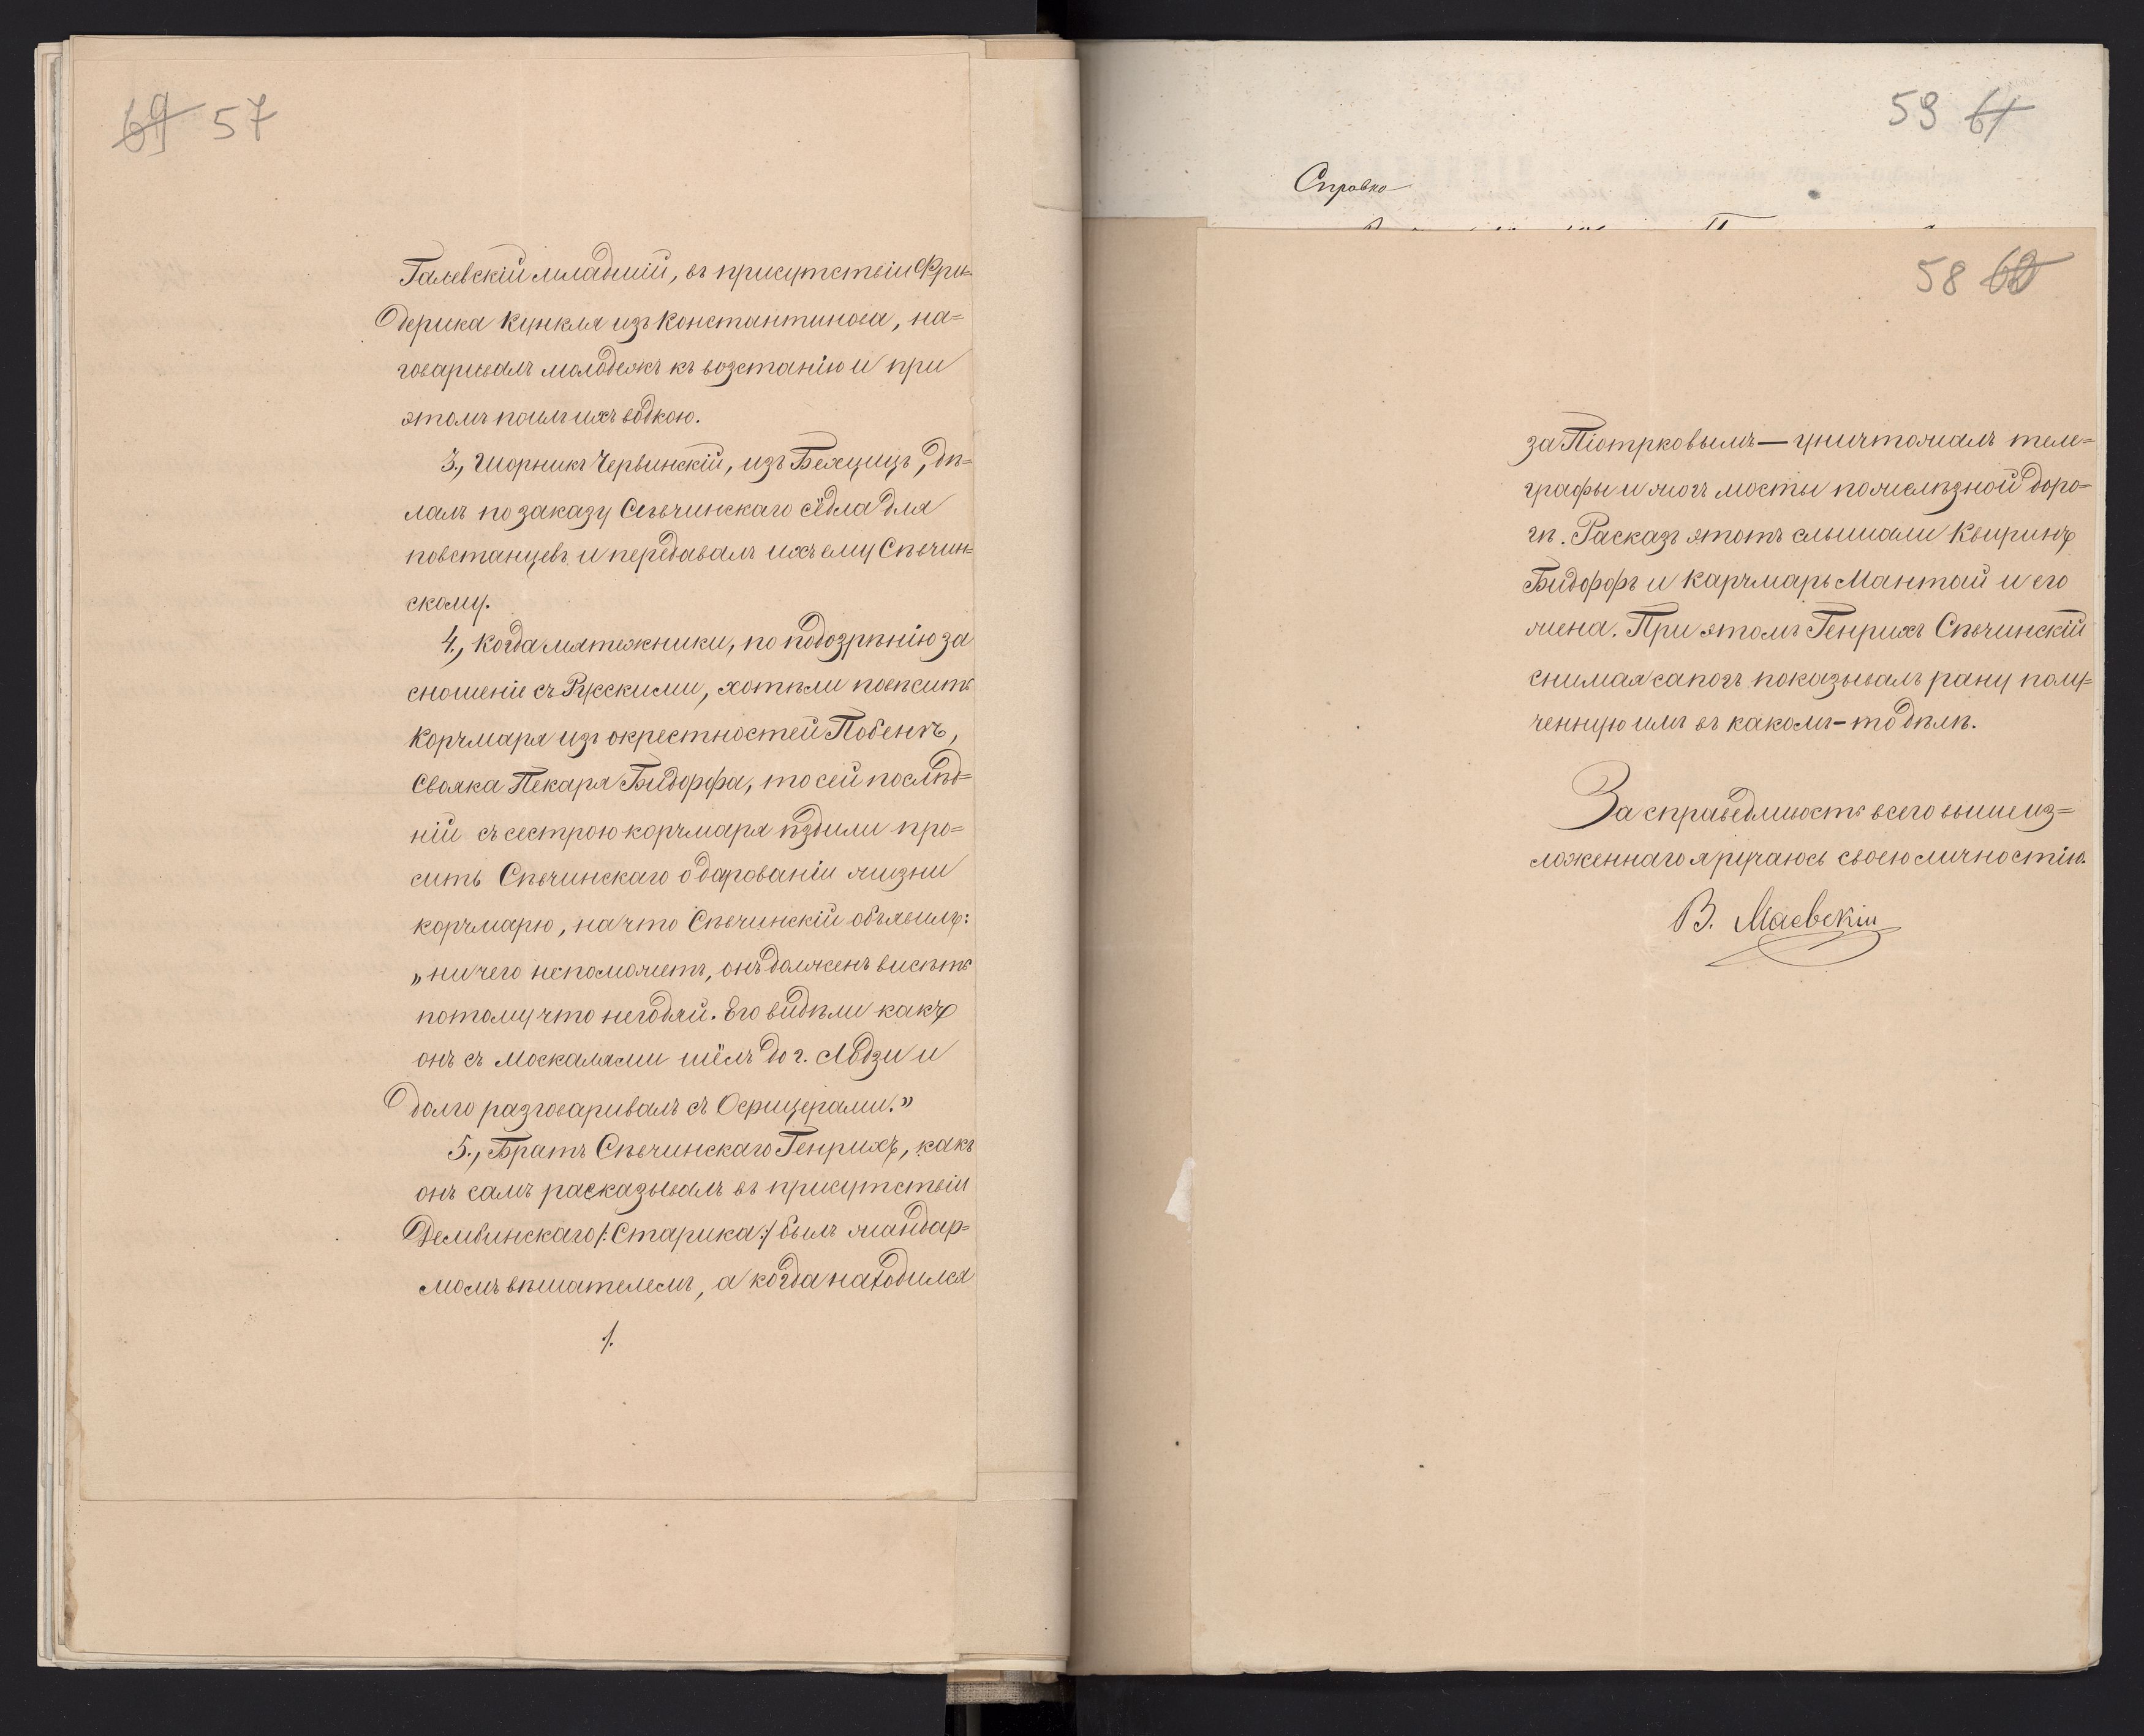 69 57
Галевскій младшій, въ присутствіи Фри-
дерика Кункля изъ Константинова, на=
говаривалъ молодежъ къ возстанію и при
этомъ поилъ ихъ водкою.
3., Шорникъ Червинскій, изъ Бехциць, дѣ=
лалъ по заказу Сѣвчинскаго сёдла для
повстанцевъ и передавалъ ихъ ему Сѣвчин=
скому.
4., Когда мятежники, по подозрѣнію за
сношеніе съ Русскими, хотѣли повѣсить
корчмаря изъ окрестностей Побенкъ,
Свояка Пекаря Бидорфа, то сей послѣд=
ній съ сестрою корчмаря ѣздили про=
сить Сѣвчинскаго о дарованіи жизни
корчмарю, на что Сѣвчинскій объявилъ:
„ничего непоможетъ, онъ долженъ висѣть
потому что негодяй. Его видѣли какъ
онъ съ москалями шёлъ до г. Лодзи и
долго разговаривалъ съ Офицерами."
5., Братъ Сѣвчинскаго Генрихъ, какъ
онъ самъ расказывалъ въ присутствіи
Дембинскаго /:Старика:/ былъ жандар=
момъ вѣшателемъ, а когда находился
/.
59 61
Справка
58 60
за Піотрковымъ — уничтожалъ теле=
графы и жогъ мосты по желѣзной доро=
гѣ. Расказъ этотъ слышали Квиринъ
Бидорфъ и Карчмарь Мантай и его
жена. При этомъ Генрихъ Сѣвчинскій
снимая сапогъ показывалъ рану полу=
ченную имъ въ какомъ-то дѣлѣ.
За справедливость всего вышеиз=
ложеннаго я ручаюсь своею личностію.
В. Маевскій